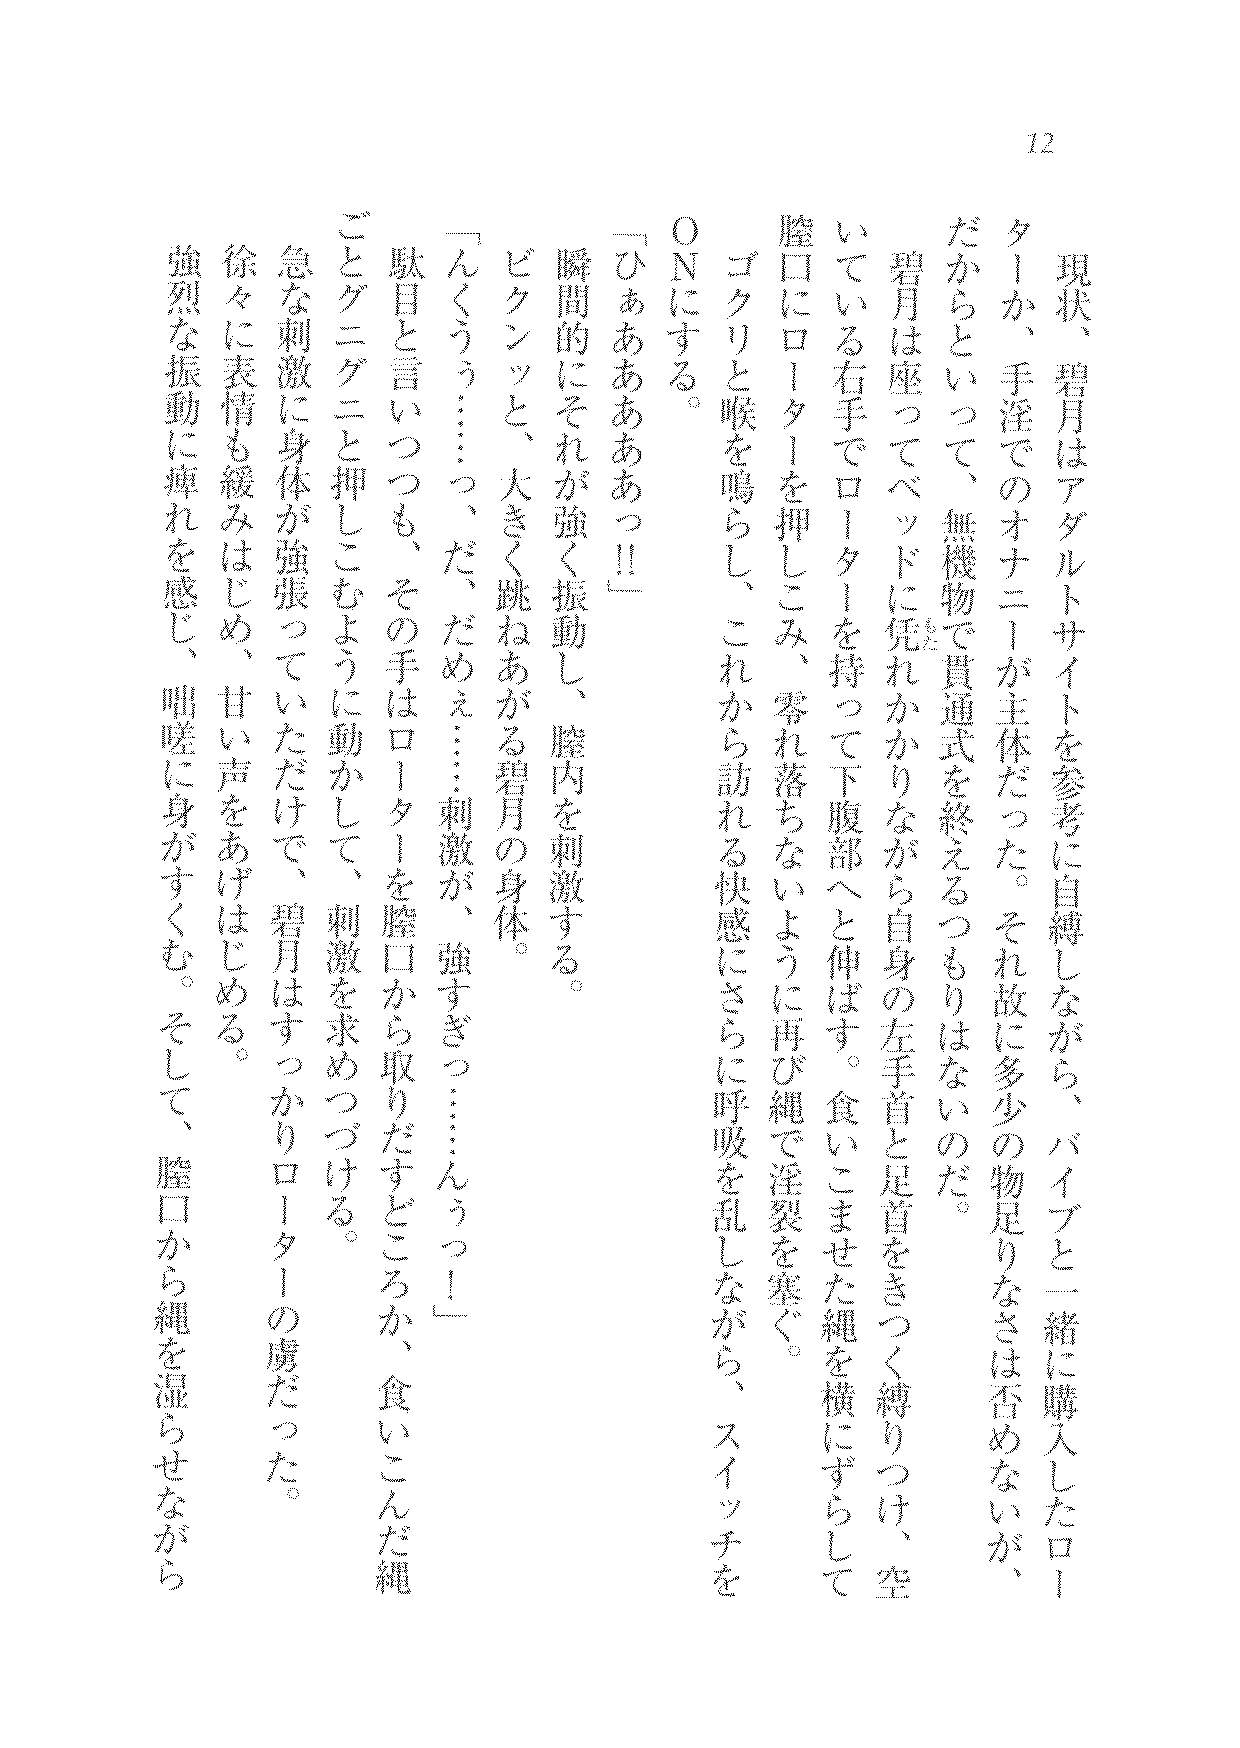 12
現状、碧月はアダルトサイトを参考に自縛しながら、バイブと一緒に購入したロー
ターか、手淫でのオナニーが主体だった。それ故に多少の物足りなさは否めないが、
だからといって、無機物で貫通式を終えるつもりはないのだ。
碧月は座ってベッドに凭れかかりながら自身の左手首と足首をきつく縛りつけ、空
もた
いている右手でローターを持って下腹部へと伸ばす。食いこませた縄を横にずらして
膣口にローターを押しこみ、零れ落ちないように再び縄で淫裂を塞ぐ。
ゴクリと喉を鳴らし、これから訪れる快感にさらに呼吸を乱しながら、スイッチを
ONにする。
「ひぁあああああっ!!」
瞬間的にそれが強く振動し、膣内を刺激する。
ビクンッと、大きく跳ねあがる碧月の身体。
「んくうぅ……っ、だ、だめぇ……刺激が、強すぎっ……んぅっ！」
駄目と言いつつも、その手はローターを膣口から取りだすどころか、食いこんだ縄
ごとグニグニと押しこむように動かして、刺激を求めつづける。
急な刺激に身体が強張っていただけで、碧月はすっかりローターの虜だった。
徐々に表情も緩みはじめ、甘い声をあげはじめる。
強烈な振動に痺れを感じ、咄嗟に身がすくむ。そして、膣口から縄を湿らせながら